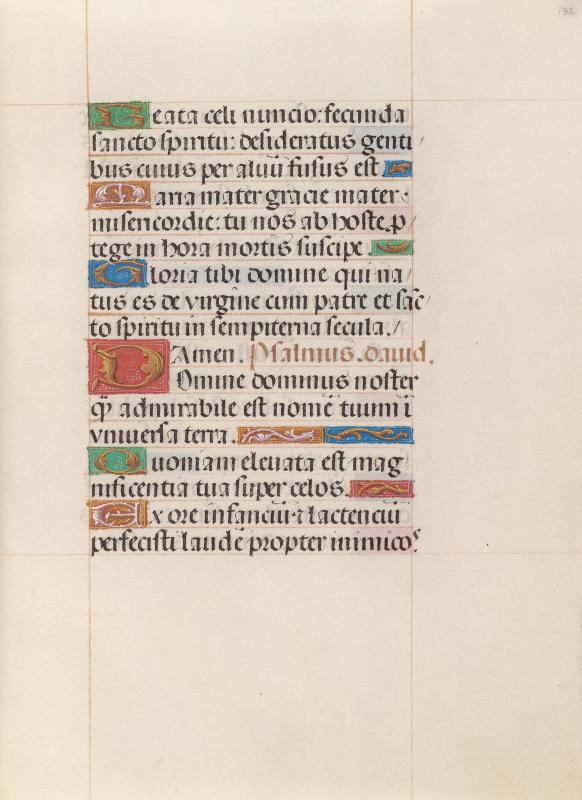 132
Beata celi nuncio: fecunda
sancto spiritu: desideratus genti/
bus cuius per aluū fusus est
Maria mater gracie mater
misericordie: tu nos ab hoste p/
tege in hora mortis suscipe.
Gloria tibi domine qui na/
tus es de virgine cum patre et sāc/
to spiritu in sempiterna secula./
Amen. Psalmus. dauid.
Domine dominus noster
q̄ admirabile est nomē tuum ī
vniuersa terra.
Quoniam eleuata est mag
nificentia tua super celos.
Ex ore infanciū ⁊ lactenciū
perfecisti laudē propter inimicos